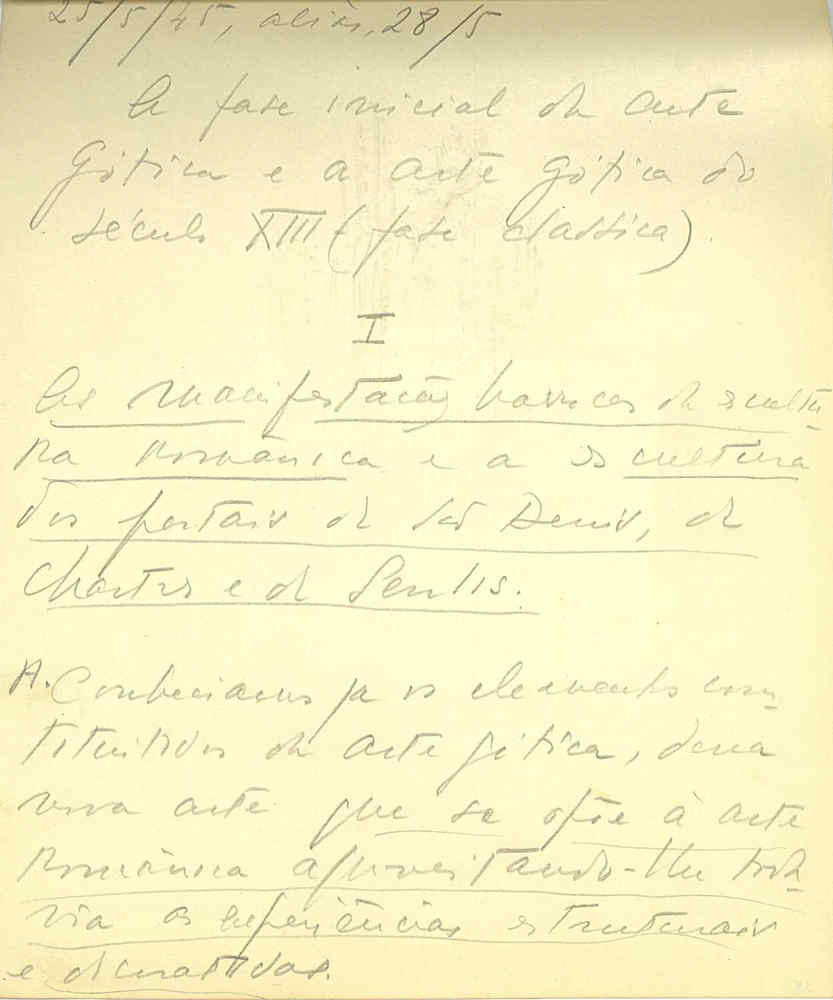 25/5/45, aliás, 28/5
A fase inicial da arte
gótica e a arte gótica do
século XIII (fase classica).
I
As manifestações barrocas da escultu-
ra românica e a escultura
dos portais de São Denis, de
Chartres e de Senlis.
A. Conheciamos já os elementos cons-
titutivos da arte gótica, dessa
nova arte que se opõe à arte
românica aproveitando-lhe toda-
via as experiências estruturais
e decorativas.